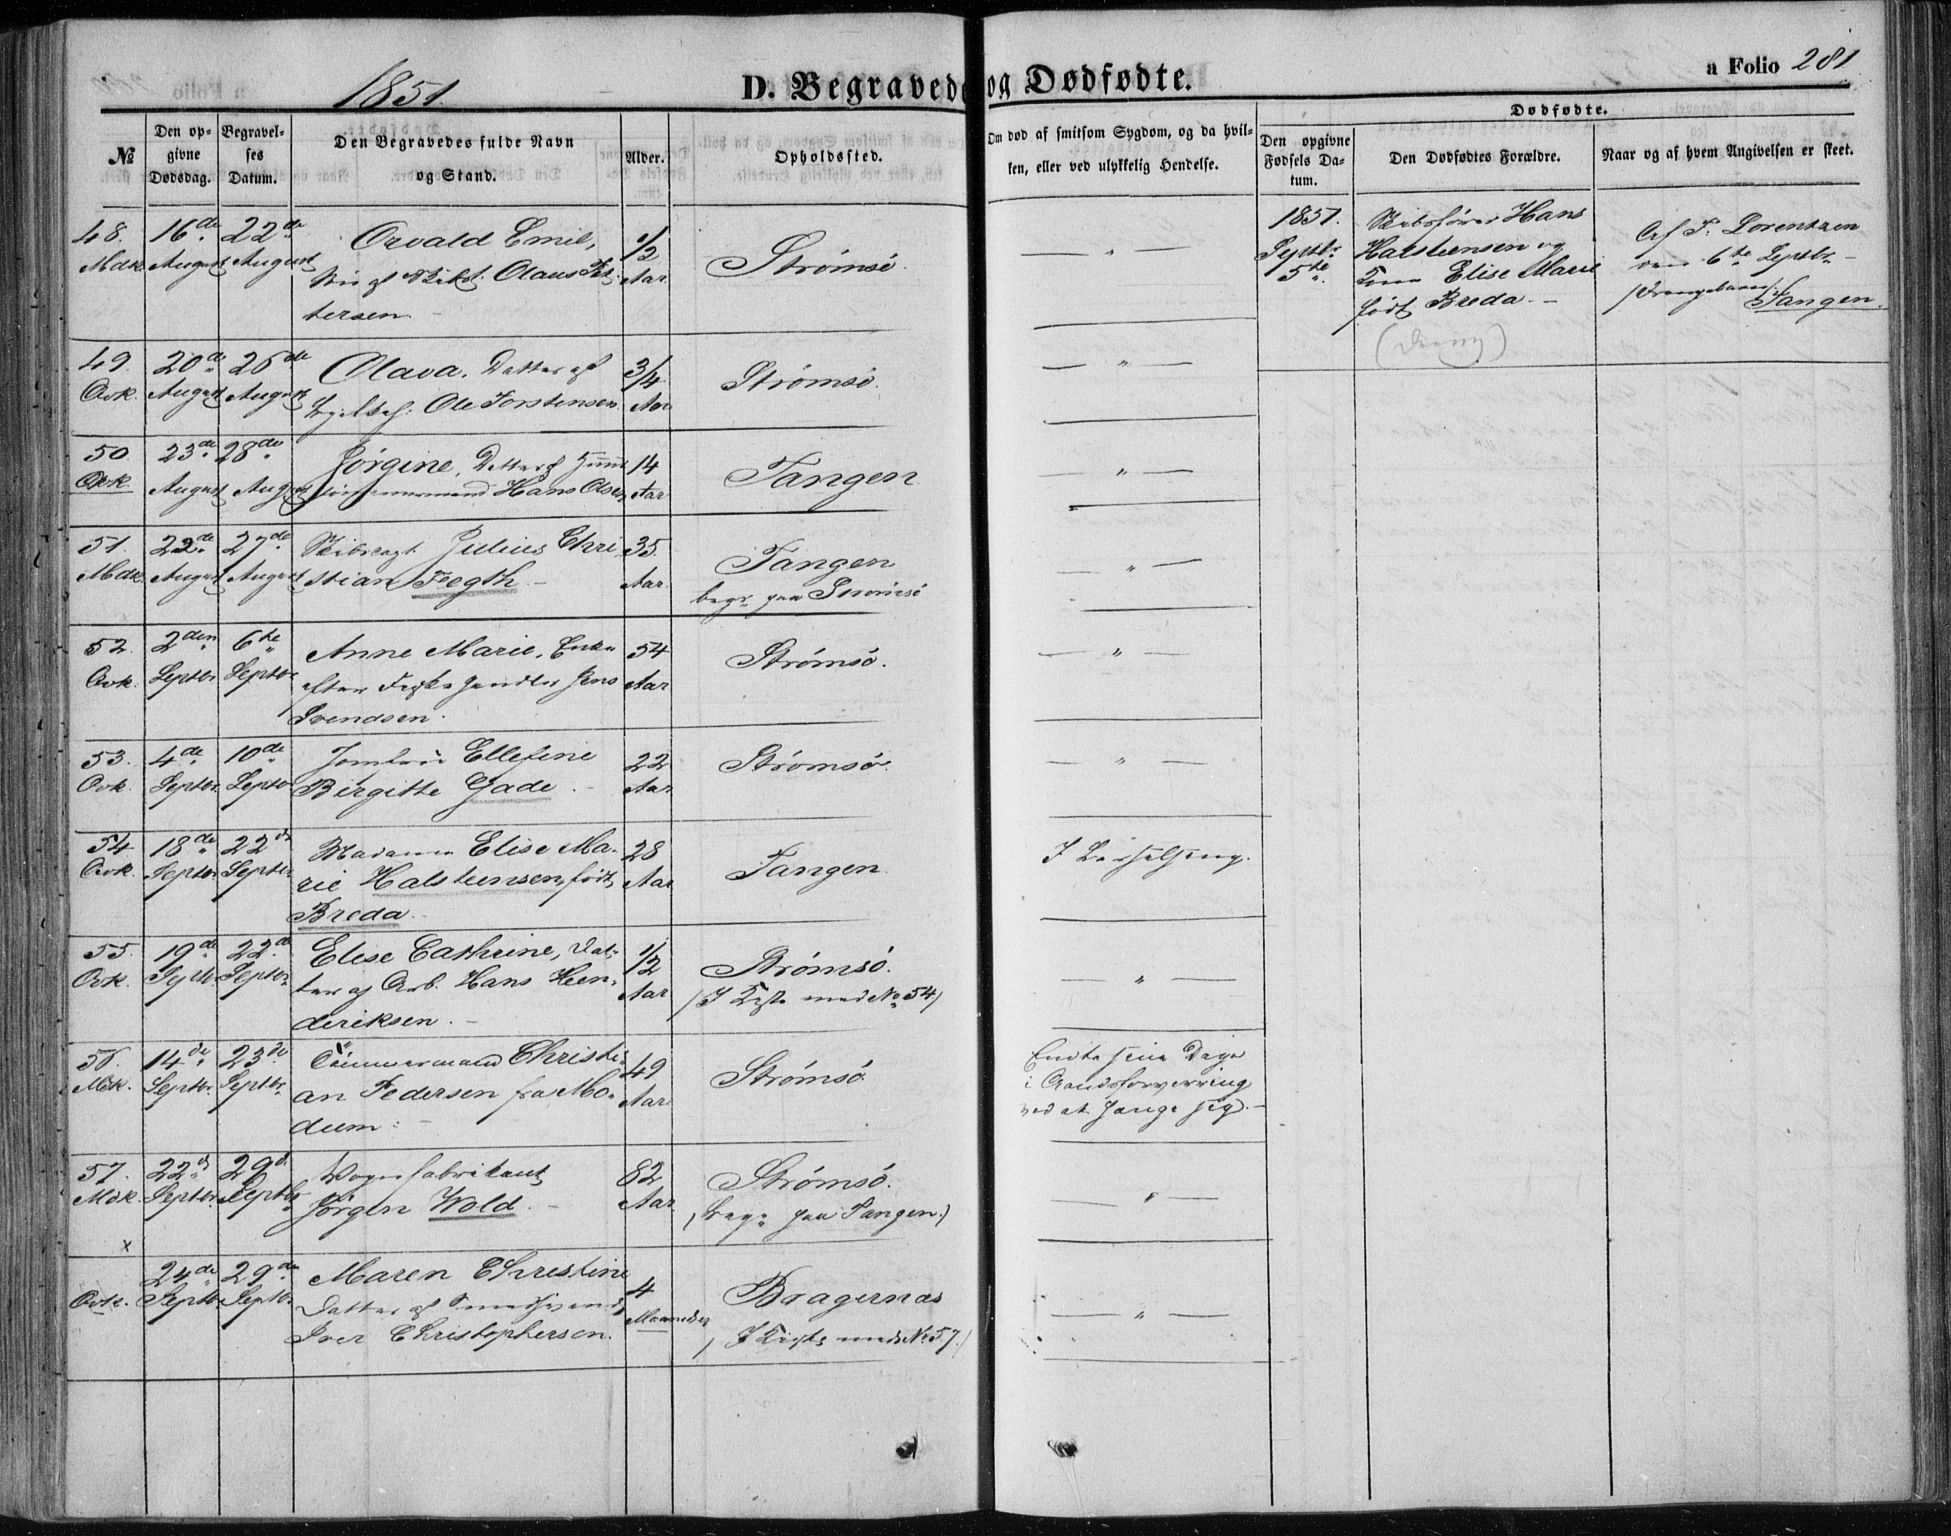 1851.
D. Begravede og Dødfødte.
a Folio 281
№
Den opgivne Dødsdag.
Begravelses Datum.
Den Begravedes fulde Navn og Stand.
Alder.
Opholdssted.
Om død af smitsom Sygdom, og da hvilken, eller ved ulykkelig Hendelse.
Dødfødte.
Den opgivne Fødsels Datum.
Den Dødfødtes Forældre.
Naar og af hvem Angivelsen er skeet.
48. 16de 22de Osvald Emil, 1/2
Mdk. August August Søn af Claus Pe- Aar Strømsø. " —
tersen.
49. 20de 26de Olava, Datter af 3/4 Strømsø. — " —
Qvk. August August Ole Torstensen Aar
50 23de 28de Jörgine, Datter af 14 Tangen — " —
Qvk. August August Hans Olsen Aar
51. 22de 27de Julius Chri- 35. Tangen — " —
Mdk. August August stian Feegth — Aar. begr. paa Strømsø
52. 2den 6te Anne Marie, Enke 54 Strømsø. — " —
Qvk. Septbr Septbr efter Jens Aar
Svendsen.
53. 4de 10de Jomfru Ellefine 22 Strømsø. — " —
Qvk. Septbr. Septbr Birgitte Gade. — Aar
54 18de 22de Madame Elise Ma- 28 Tangen. I Barselseng.
Qvk. Septbr Septbr rie Halsteensen, født Aar
Breda. —
55. 19de 22de Elise Cathrine, Dat- 1/2 Strømsø. — " —
Qvk. Septbr Septbr. ter af Arb. Hans Hen- Aar (I Kiste med No 54)
deriksen. —
56. 14de 23de Tömmermand Christi- 49 Strømsø Endte sine Dage
Mdk. Septbr. Septbr. an Pedersen fra Mo- Aar i Aandsforvirring
dum. — ved at hænge sig. —
57. 22de 29de Vognfabrikant 82 Strømsø. — " —
Mdk. Septbr. Septbr Jörgen Wold. — Aar (begr. paa Tangen.)
x
24de 29de Maren Christine 4 Bragernæs — " —
Qvk. Septbr Septbr. Datter af Maaneder (I Kiste med No 57.)
Iver Christophersen.
1851. Septbr 5te.
Skibsfører Hans
Halsteensen og
Kone Elise Marie
født Breda. —
(Dreng)
Af F. Lorentzen
den 6te Septbr. —
Tangen.